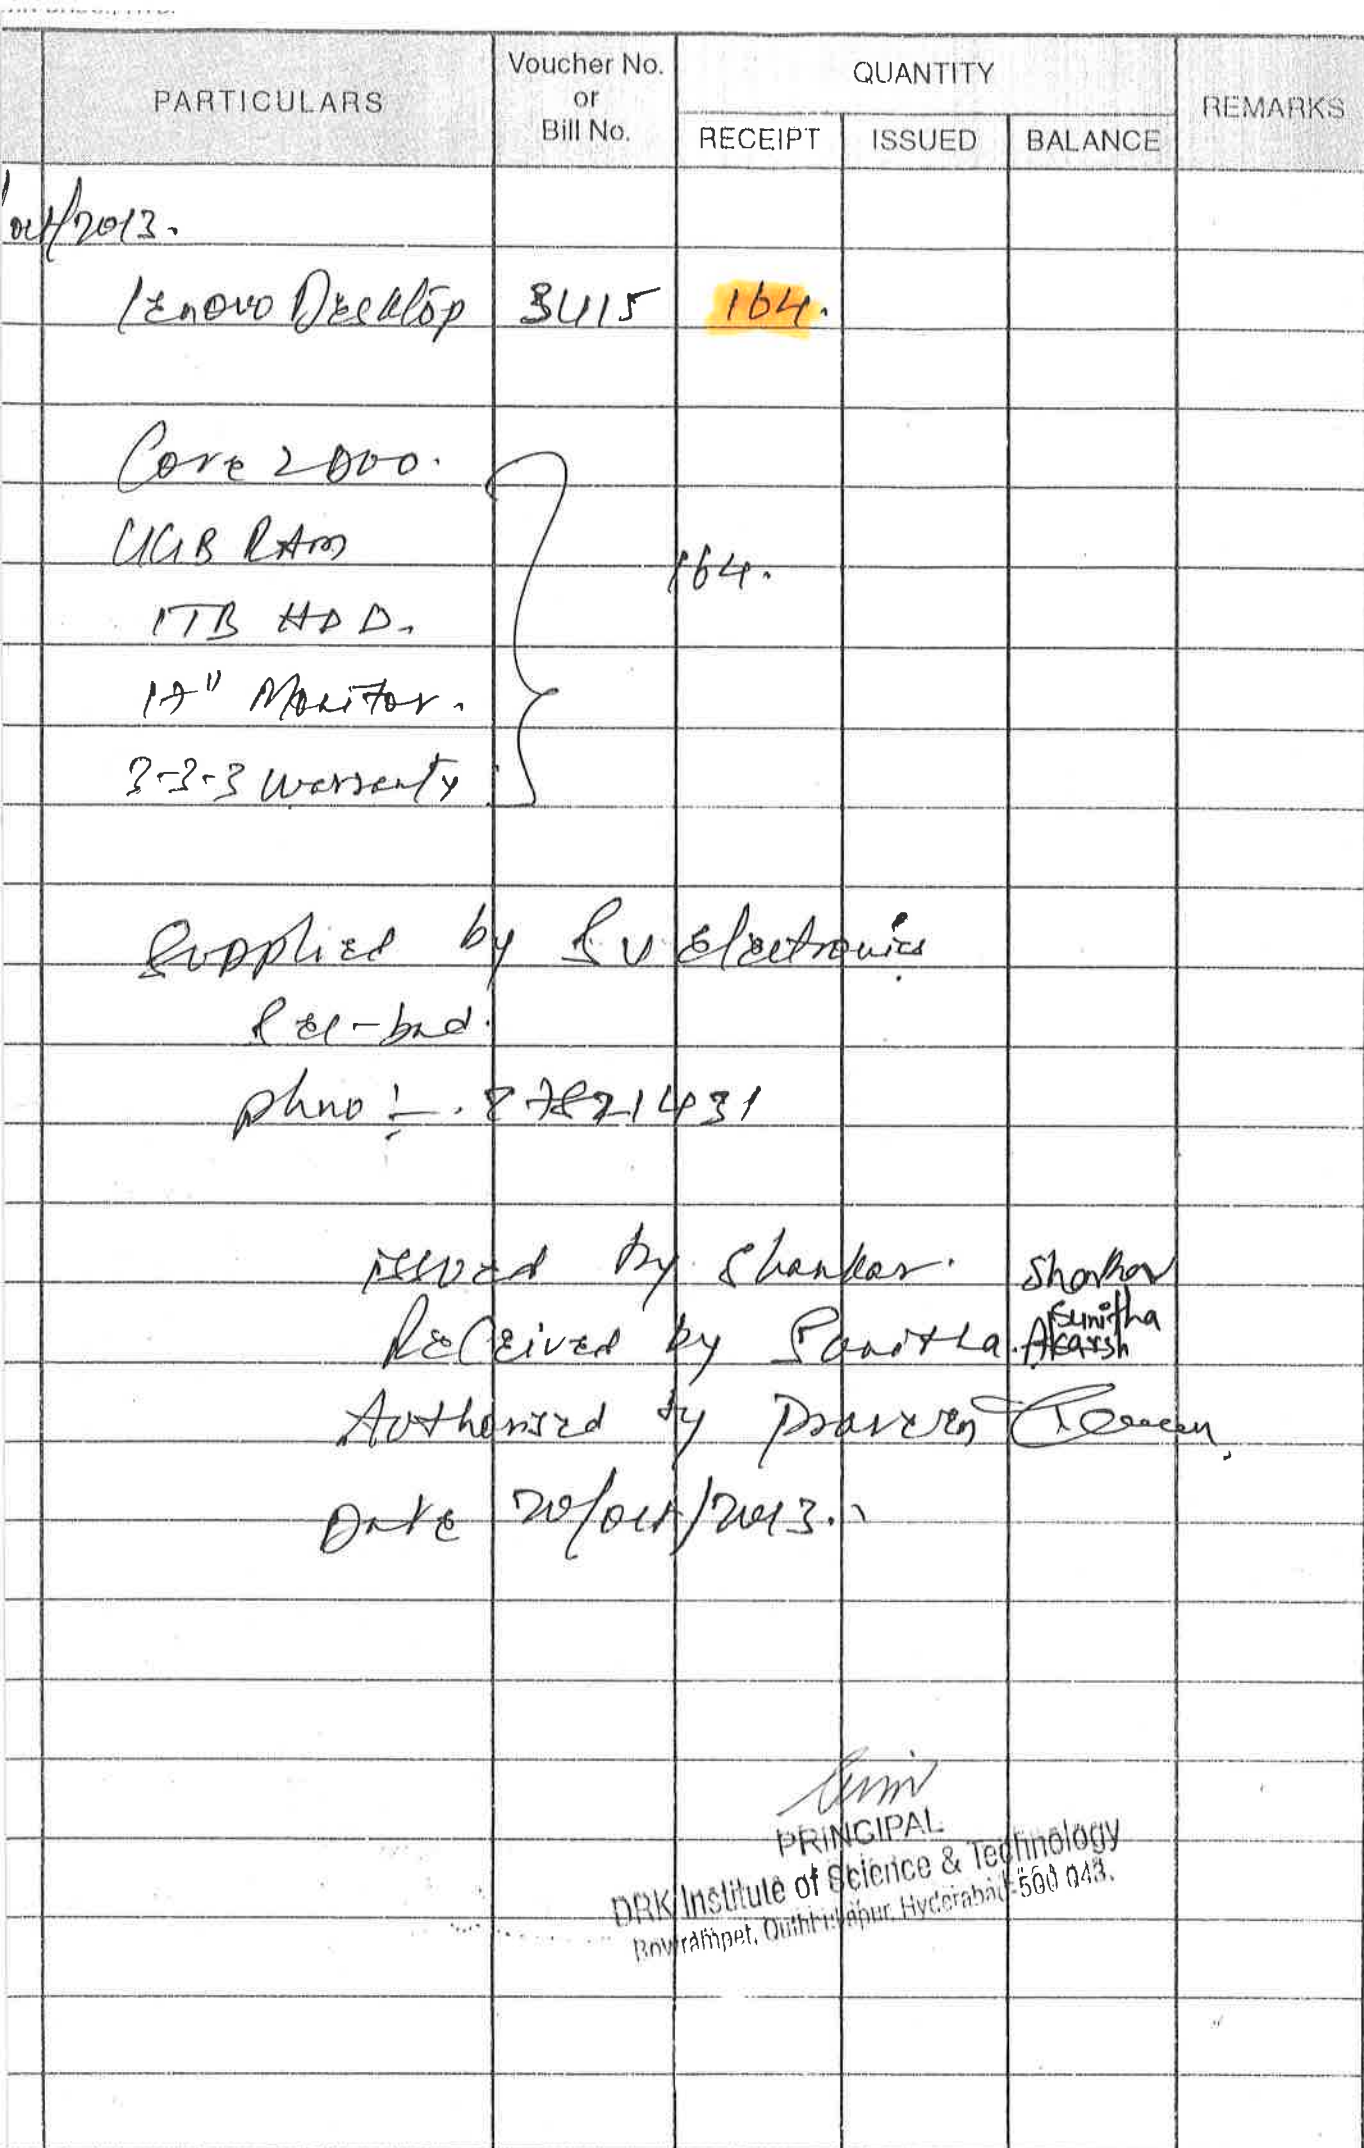 PARTICULARS
Voucher No.
or
Bill No.
QUANTITY
RECEIPT
ISSUED
BALANCE
REMARKS
oct/2013.
Lenovo Desktop 3415 164.
Core 2 Duo.
4GB RAM
164.
1TB HDD.
17" Monitor.
3-3-3 Warranty
Supplied by SV electronics
Sec-bad.
phno :- 27821431
issued by Shankar. Shankar
Received by Sunitha. Sunitha
Akarsh
Authorized by Praveen
Date 20/oct/2013.
PRINCIPAL
DRK Institute of Science & Technology
Bowrampet, Quthbullapur, Hyderabad-500 043.